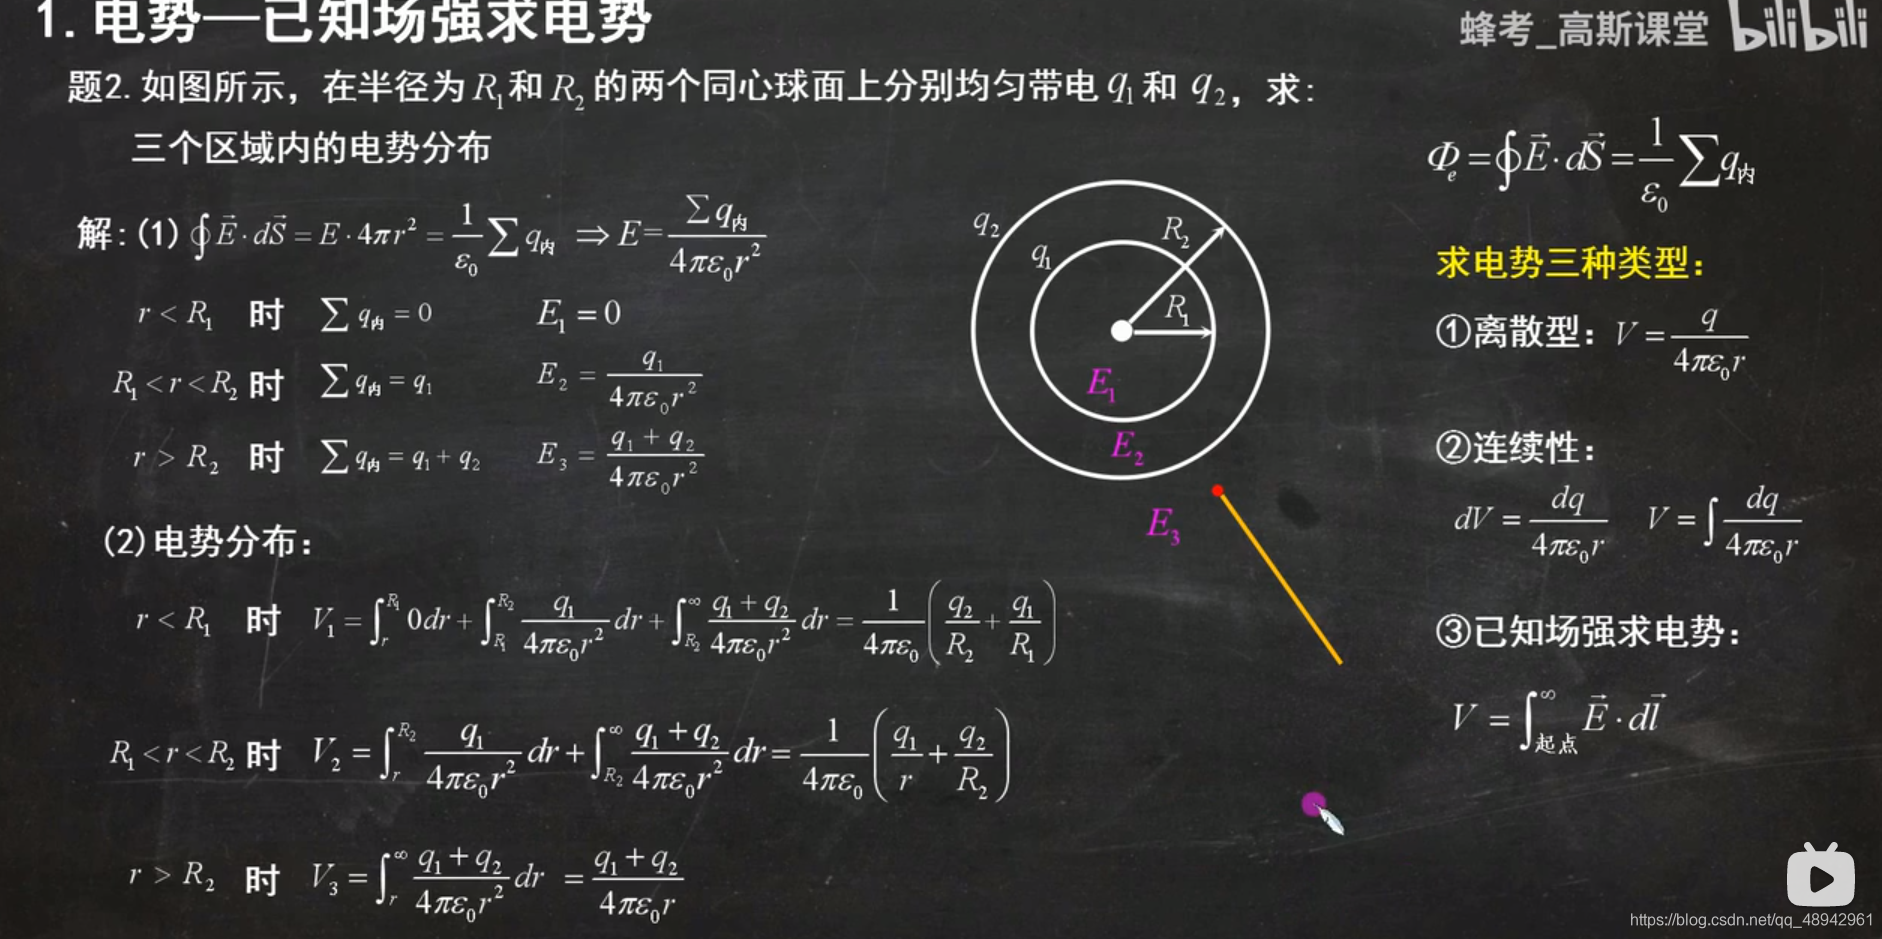 1.电势—已知场强求电势
蜂考_高斯课堂 bilibili
题2.如图所示，在半径为R₁和R₂的两个同心球面上分别均匀带电q₁和q₂，求:
三个区域内的电势分布
解:(1)∮E⃗·dS⃗=E·4πr²=1/ε₀ ∑q内 ⇒E=∑q内/4πε₀r²
r<R₁ 时 ∑q内=0 E₁=0
R₁<r<R₂ 时 ∑q内=q₁ E₂=q₁/4πε₀r²
r>R₂ 时 ∑q内=q₁+q₂ E₃=(q₁+q₂)/4πε₀r²
(2)电势分布:
r<R₁ 时 V₁=∫ᵣ^R₁ 0dr+∫_R₁^R₂ q₁/4πε₀r² dr+∫_R₂^∞ (q₁+q₂)/4πε₀r² dr=1/4πε₀ (q₂/R₂+q₁/R₁)
R₁<r<R₂ 时 V₂=∫ᵣ^R₂ q₁/4πε₀r² dr+∫_R₂^∞ (q₁+q₂)/4πε₀r² dr=1/4πε₀ (q₁/r+q₂/R₂)
r>R₂ 时 V₃=∫ᵣ^∞ (q₁+q₂)/4πε₀r² dr =(q₁+q₂)/4πε₀r
q₂
q₁
R₂
R₁
E₁
E₂
E₃
Φₑ=∮E⃗·dS⃗=1/ε₀ ∑q内
求电势三种类型:
①离散型: V=q/4πε₀r
②连续性:
dV=dq/4πε₀r V=∫dq/4πε₀r
③已知场强求电势:
V=∫起点^∞ E⃗·dl⃗
https://blog.csdn.net/qq_48942961